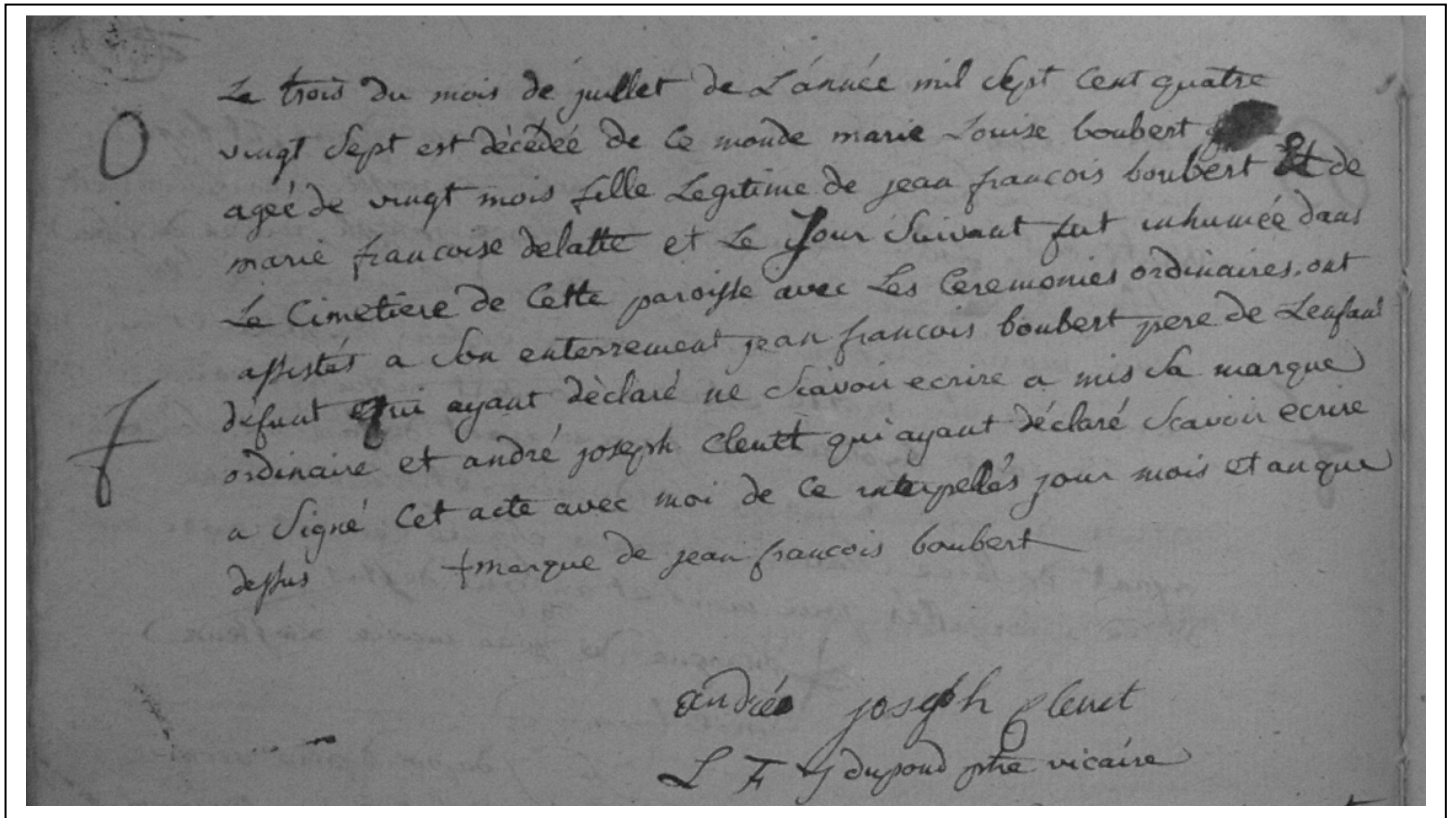 Le trois du mois de juillet de L'année mil sept cent quatre
vingt sept est décédée de ce monde marie Louise boubert
ageé de vingt mois fille Legitime de jean françois boubert et de
marie francoise delatte et Le Jour suivant fut inhumée dans
Le Cimetiere de Cette paroisse avec Les Ceremonies ordinaires, ont
assistés a son enterrement jean francois boubert pere de Lenfant
defunt qui ayant déclaré ne scavoir ecrire a mis sa marque
ordinaire et andré joseph Cleuet qui ayant déclaré scavoir ecrire
a signé Cet acte avec moi de Ce interpellés jour mois et an que
dessus +marque de jean francois boubert
andrée joseph Cleuet
L F J dupond ptre vicaire